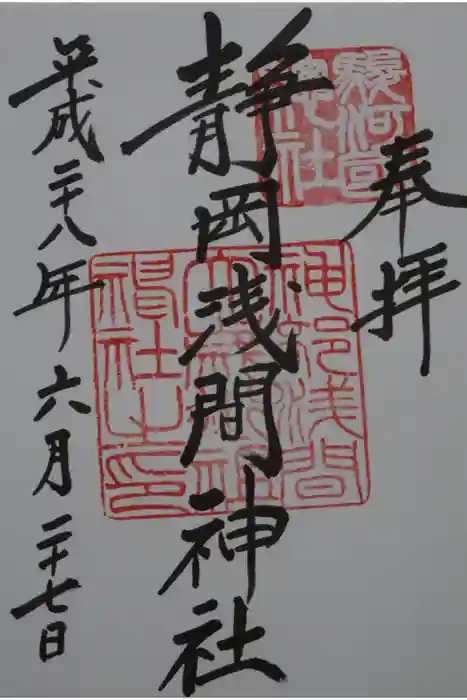 奉拝
駿河国
總社
静岡浅間神社
神部浅間
大歳御祖
神社之印
平成二十八年六月二十七日